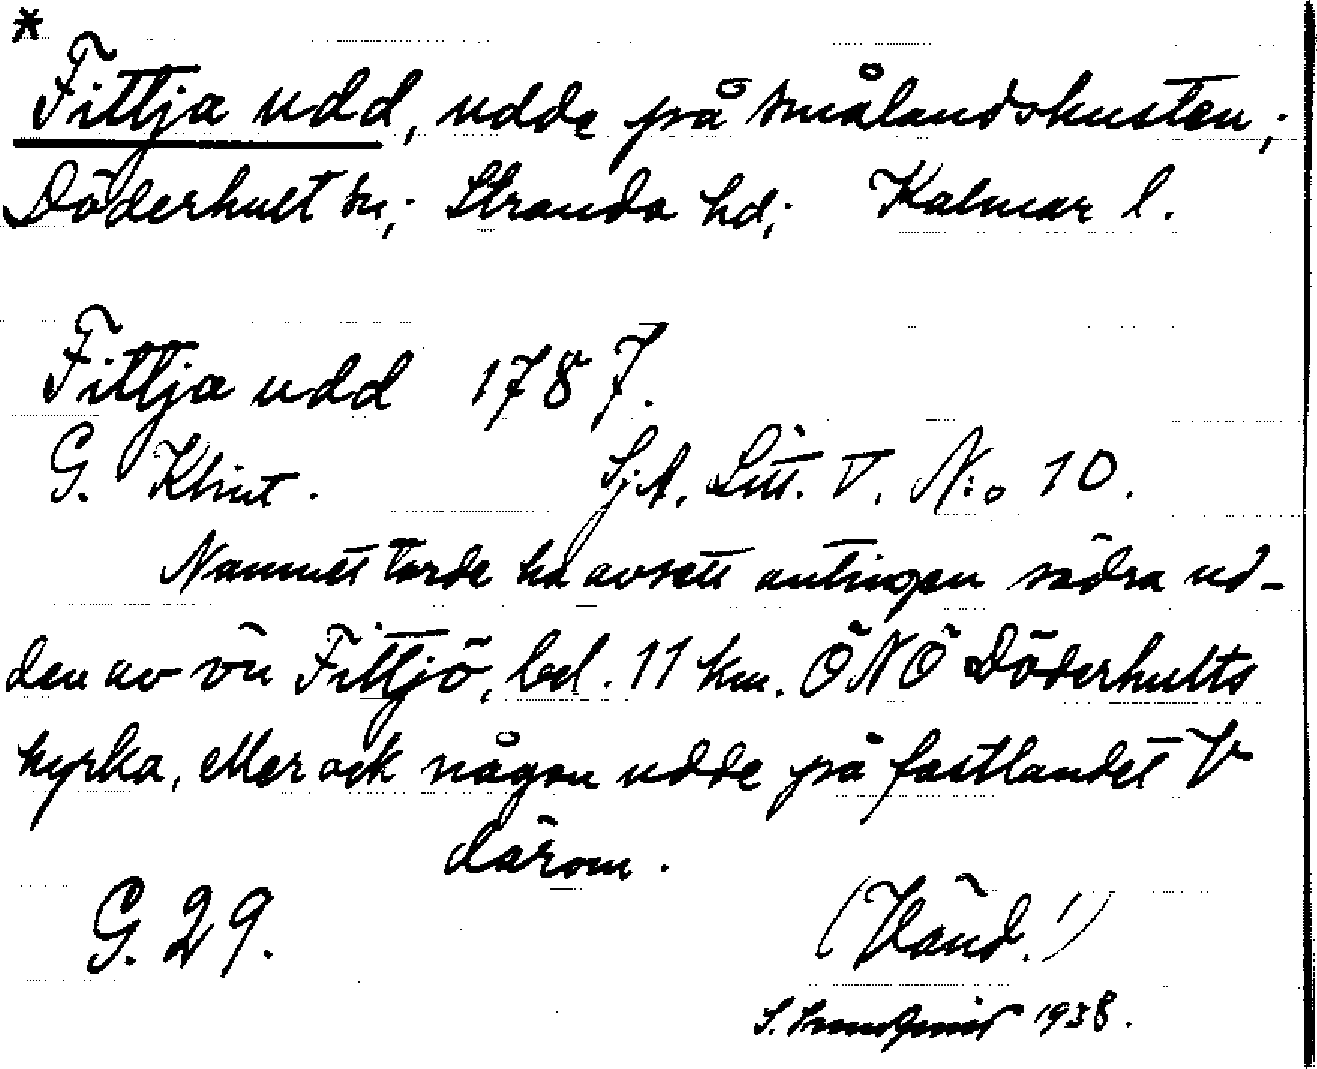 *
Fittja udd, udde på Smålandskusten;
Döderhult sn; Stranda hd; Kalmar l.
Fittja udd 1787.
G. Klint. Sjk. Litt. V. N:o 10.
Namnet torde ha avsett antingen södra ud-
den av ön Fittjö, bel. 11 km. ÖNÖ Döderhults
kyrka, eller ock någon udde på fastlandet V
därom.
G. 29. (Vänd!)
S. 1938.